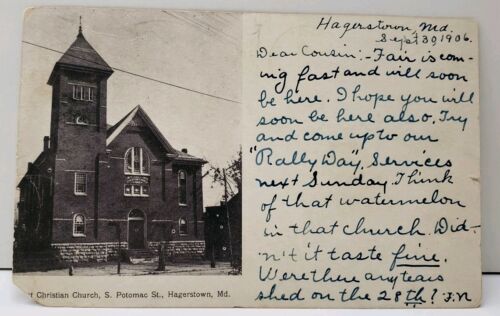 Hagerstown, Md.
Sept 30, 1906.
Dear Cousin:- Fair is com-
ing fast and will soon
be here. I hope you will
soon be here also. Try
and come up to our
"Rally Day". Services
next Sunday. Think
of that watermelon
in that church. Did-
n't it taste fine.
Were there any tears
shed on the 28th? F.N
t Christian Church, S. Potomac St., Hagerstown, Md.